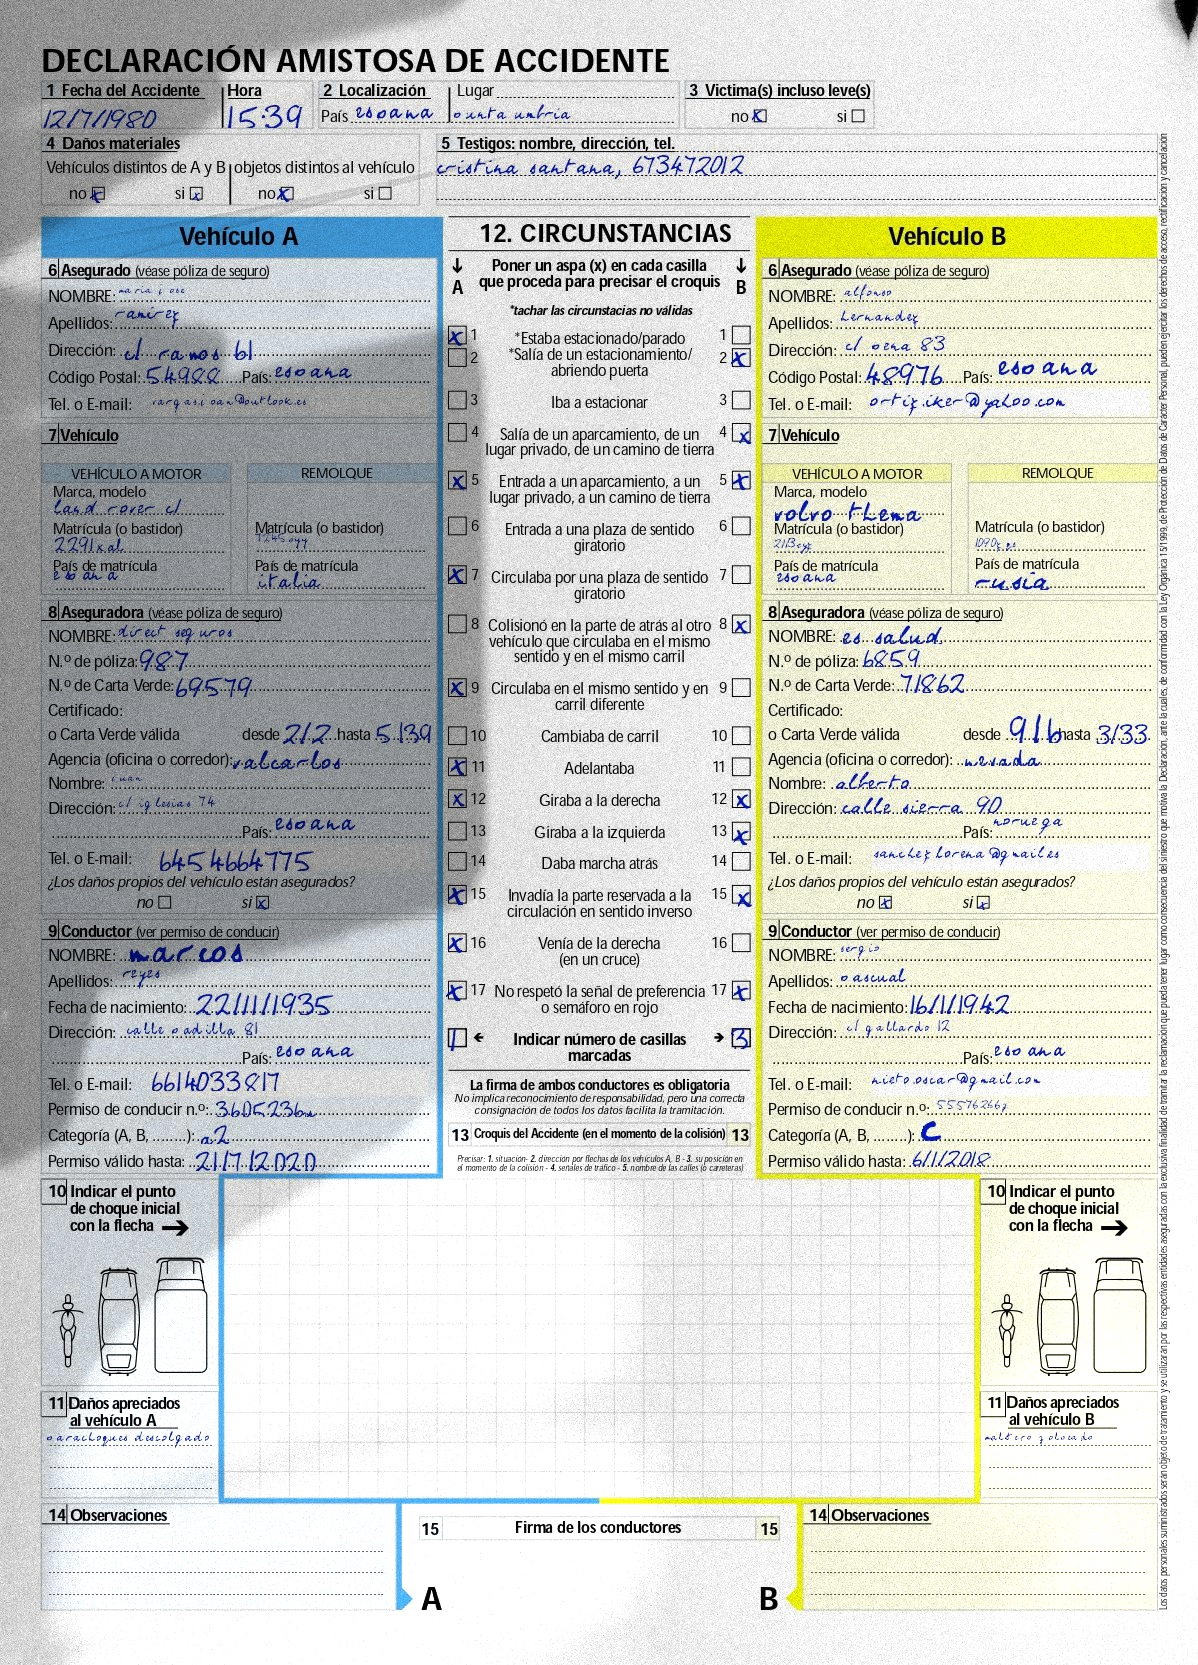 DECLARACIÓN AMISTOSA DE ACCIDENTE
1 Fecha del Accidente Hora 2 Localización Lugar 3 Victima(s) incluso leve(s)
12/7/1980 15:39 País esoana ounta umbria no x si
4 Daños materiales
Vehículos distintos de A y B objetos distintos al vehículo
no x si x no x si
5 Testigos: nombre, dirección, tel.
cristina santana, 673472012
Vehículo A
6 Asegurado (véase póliza de seguro)
NOMBRE: maria j ose
Apellidos: ramirez
Dirección: c/ ramos 61
Código Postal: 54988 País: esoana
Tel. o E-mail: vargasjoan@outlook.es
7 Vehículo
VEHÍCULO A MOTOR REMOLQUE
Marca, modelo
land rover cl
Matrícula (o bastidor) Matrícula (o bastidor)
2291xal
País de matrícula País de matrícula
esoana italia
8 Aseguradora (véase póliza de seguro)
NOMBRE: direct seguros
N.º de póliza: 987
N.º de Carta Verde: 69579
Certificado:
o Carta Verde válida desde 2/2 hasta 5/39
Agencia (oficina o corredor): valcarlos
Nombre: juan
Dirección: c/ iglesias 74
País: esoana
Tel. o E-mail: 6454664775
¿Los daños propios del vehículo están asegurados?
no si x
9 Conductor (ver permiso de conducir)
NOMBRE: marcos
Apellidos: reyes
Fecha de nacimiento: 22/11/1935
Dirección: calle oadilla 81
País: esoana
Tel. o E-mail: 6614033817
Permiso de conducir n.º:
Categoría (A, B, ........): a2
Permiso válido hasta: 21/7/2020
12. CIRCUNSTANCIAS
A Poner un aspa (x) en cada casilla que proceda para precisar el croquis B
*tachar las circunstacias no válidas
x 1 *Estaba estacionado/parado 1
2 *Salía de un estacionamiento/ 2 x
abriendo puerta
3 Iba a estacionar 3
4 Salía de un aparcamiento, de un 4 x
lugar privado, de un camino de tierra
x 5 Entrada a un aparcamiento, a un 5 x
lugar privado, a un camino de tierra
6 Entrada a una plaza de sentido 6
giratorio
x 7 Circulaba por una plaza de sentido 7
giratorio
8 Colisionó en la parte de atrás al otro 8 x
vehículo que circulaba en el mismo
sentido y en el mismo carril
x 9 Circulaba en el mismo sentido y en 9
carril diferente
10 Cambiaba de carril 10
x 11 Adelantaba 11
x 12 Giraba a la derecha 12 x
13 Giraba a la izquierda 13 x
14 Daba marcha atrás 14
x 15 Invadía la parte reservada a la 15 x
circulación en sentido inverso
x 16 Venía de la derecha 16
(en un cruce)
x 17 No respetó la señal de preferencia 17 x
o semáforo en rojo
1 Indicar número de casillas 3
marcadas
La firma de ambos conductores es obligatoria
No implica reconocimiento de responsabilidad, pero una correcta
consignación de todos los datos facilita la tramitación.
13 Croquis del Accidente (en el momento de la colisión) 13
Precisar: 1. situación- 2. dirección por flechas de los vehículos A, B - 3. su posición en
el momento de la colisión - 4. señales de tráfico - 5. nombre de las calles (o carreteras)
Vehículo B
6 Asegurado (véase póliza de seguro)
NOMBRE: alfonso
Apellidos: hernandez
Dirección: c/ oena 83
Código Postal: 48976 País: esoana
Tel. o E-mail: ortiz.iker@yahoo.com
7 Vehículo
VEHÍCULO A MOTOR REMOLQUE
Marca, modelo
volvo thema
Matrícula (o bastidor) Matrícula (o bastidor)
País de matrícula País de matrícula
esoana rusia
8 Aseguradora (véase póliza de seguro)
NOMBRE: es salud
N.º de póliza: 6859
N.º de Carta Verde: 71862
Certificado:
o Carta Verde válida desde 9/6 hasta 3/33
Agencia (oficina o corredor): nevada
Nombre: alberto
Dirección: calle sierra 90
País: noruega
Tel. o E-mail: sanchezlorena@gmail.es
¿Los daños propios del vehículo están asegurados?
no x si x
9 Conductor (ver permiso de conducir)
NOMBRE: sergio
Apellidos: oascual
Fecha de nacimiento: 16/1/1942
Dirección: c/ gallardo 12
País: esoana
Tel. o E-mail: nieto.oscar@gmail.com
Permiso de conducir n.º:
Categoría (A, B, .......): c
Permiso válido hasta: 6/1/2018
10 Indicar el punto
de choque inicial
con la flecha
11 Daños apreciados
al vehículo A
oarachoques descolgado
10 Indicar el punto
de choque inicial
con la flecha
11 Daños apreciados
al vehículo B
14 Observaciones
15 Firma de los conductores 15
A B
14 Observaciones